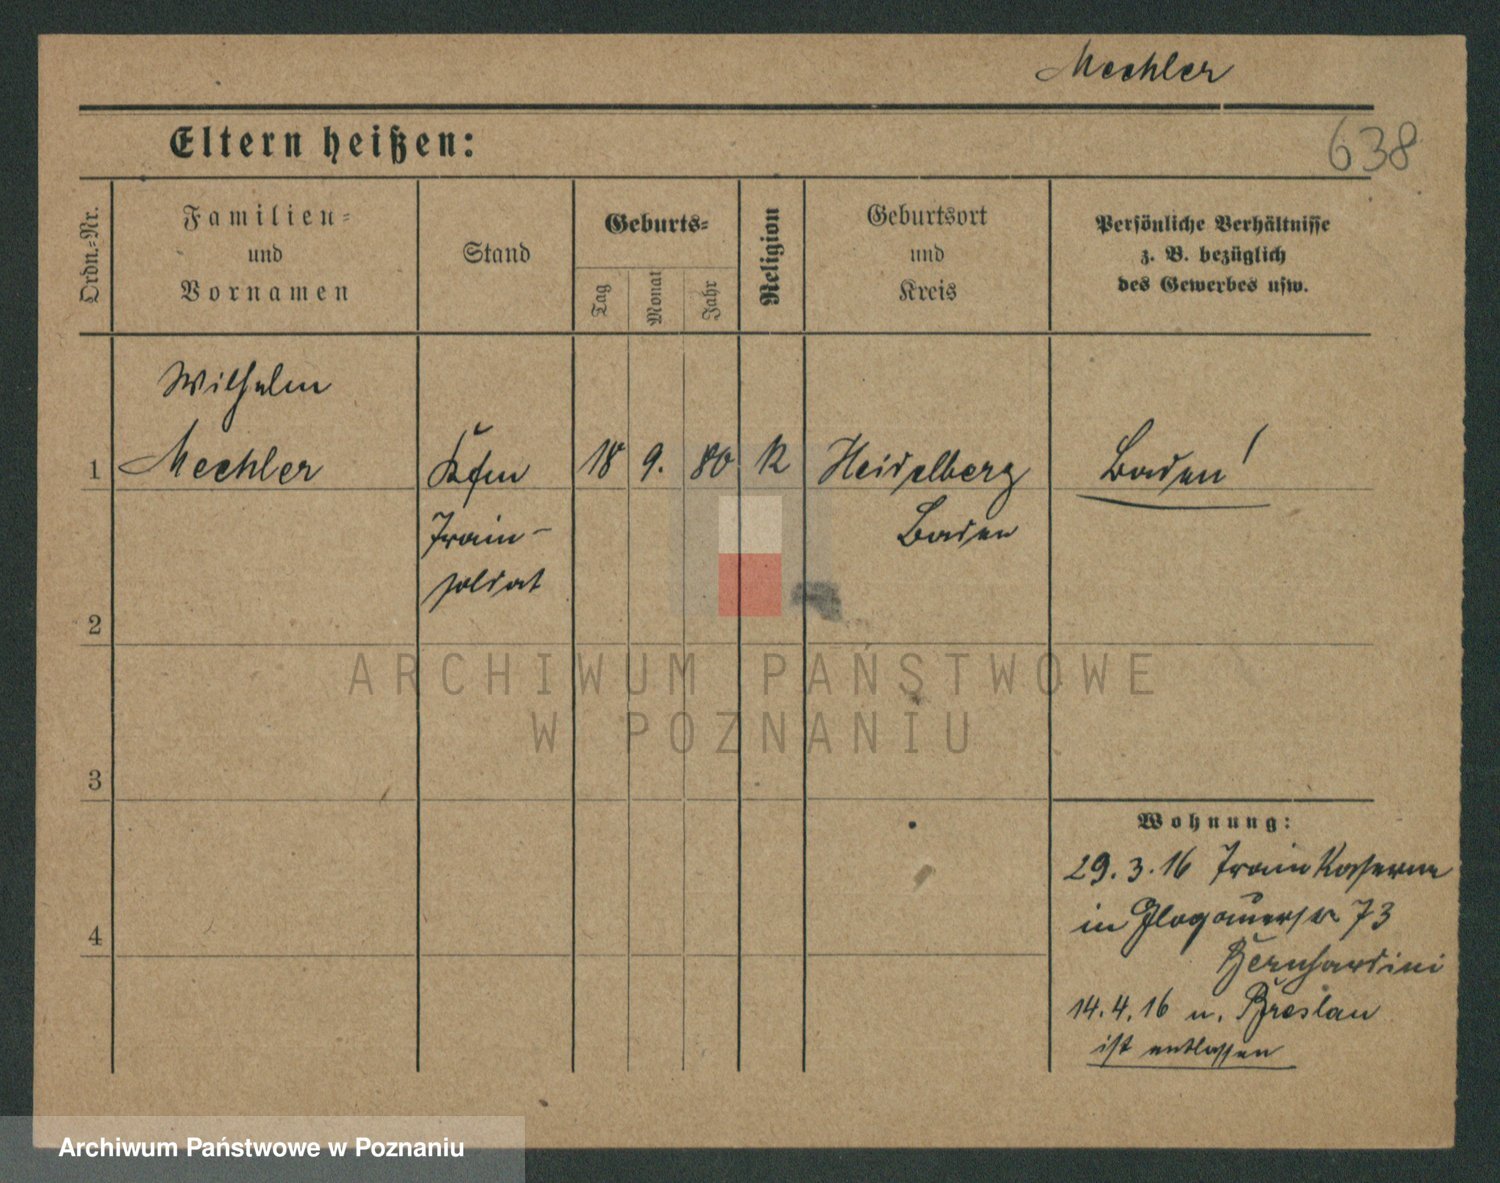 Mechler
638
Eltern heißen:
Ordn.=Nr.
Familien=
und
Vornamen
Stand
Geburts=
Tag
Monat
Jahr
Religion
Geburtsort
und
Kreis
Persönliche Verhältnisse
z. B. bezüglich
des Gewerbes usw.
Wilhelm
1 Mechler Kfm 18 9. 80 K Heidelberg Baden!
Train- Baden
soldat
2
ARCHIWUM PAŃSTWOWE
W POZNANIU
3
Wohnung:
29.3.16 Train Kaserne
in Glogauerstr 73
4
Bernhardini
14.4.16 n. Breslau
ist entlassen
Archiwum Państwowe w Poznaniu